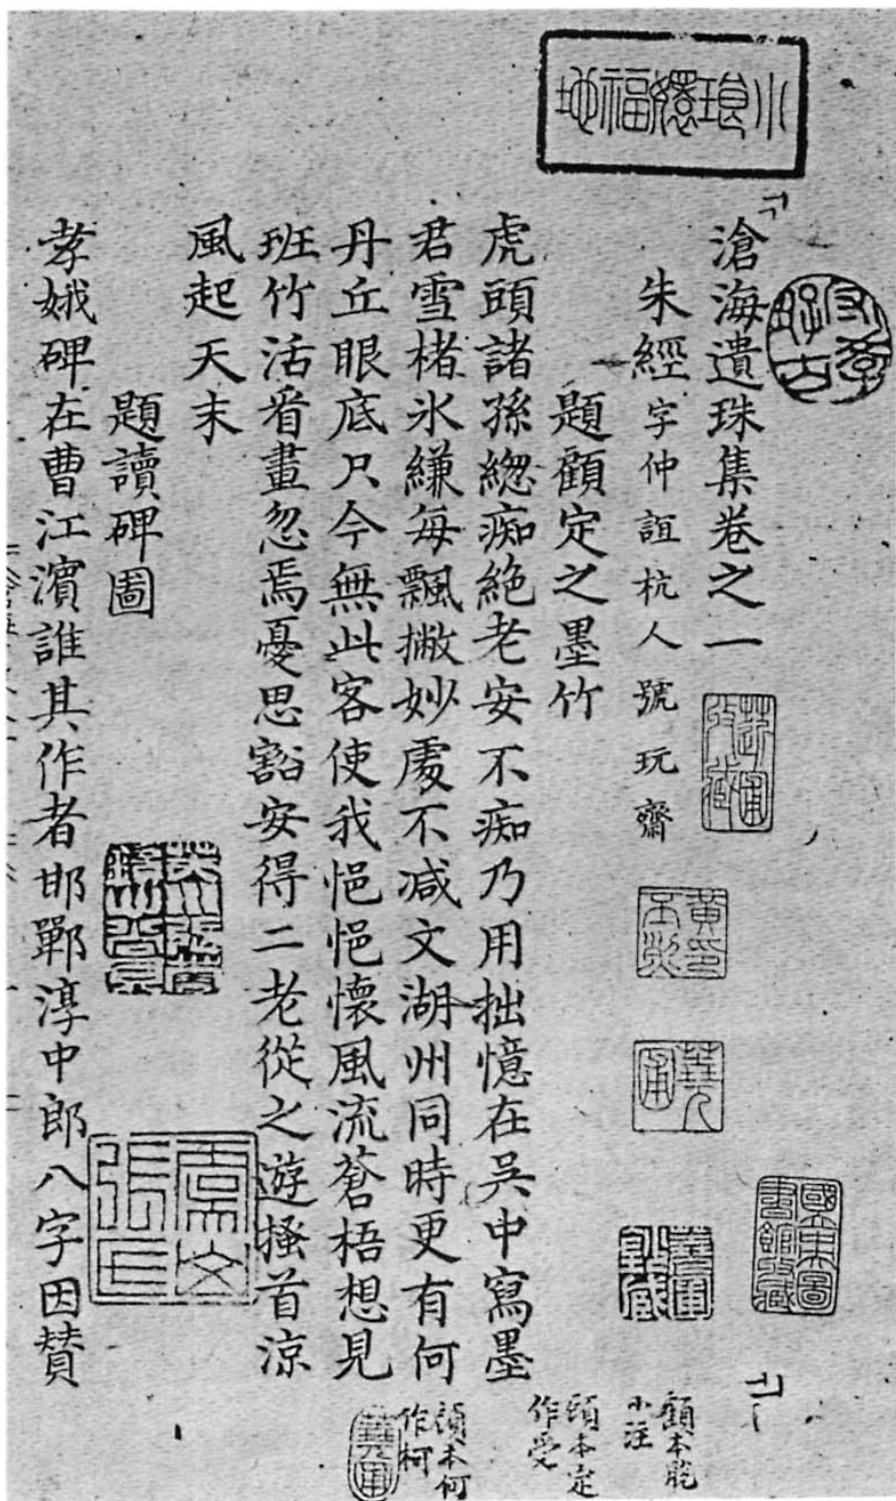 小琅嬛福地
滄海遺珠集卷之一
朱經字仲誼杭人號玩齋
題顧定之墨竹
虎頭諸孫緫痴絶老安不痴乃用拙憶在吳中寫墨
君雪楮氷縑每飄撇妙處不减文湖州同時更有何
丹丘眼底只今無此客使我悒悒懷風流蒼梧想見
班竹活看畫忽焉憂思豁安得二老從之遊搔首涼
風起天末
題讀碑圖
孝娥碑在曹江濱誰其作者邯鄲淳中郎八字因賛
黃印丕烈
蕘圃
國立中央圖書館收藏
顧本脫
小注
顧本定
作受
顧本何
作柯
蕘圃